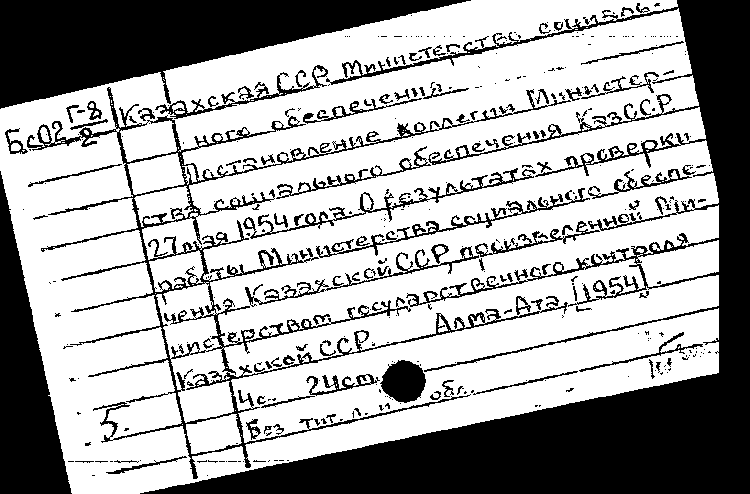 БсО2 Г-8/2 Казахская ССР. Министерство социаль-
ного обеспечения.
Постановление коллегии Министер-
ства социального обеспечения КазССР
27 мая 1954 года. О результатах проверки
работы Министерства социального обеспе-
чения Казахской ССР, произведенной Ми-
нистерством государственного контроля
Казахской ССР. Алма-Ата, [1954].
4с. 24см
5. Без тит. л. и обл.